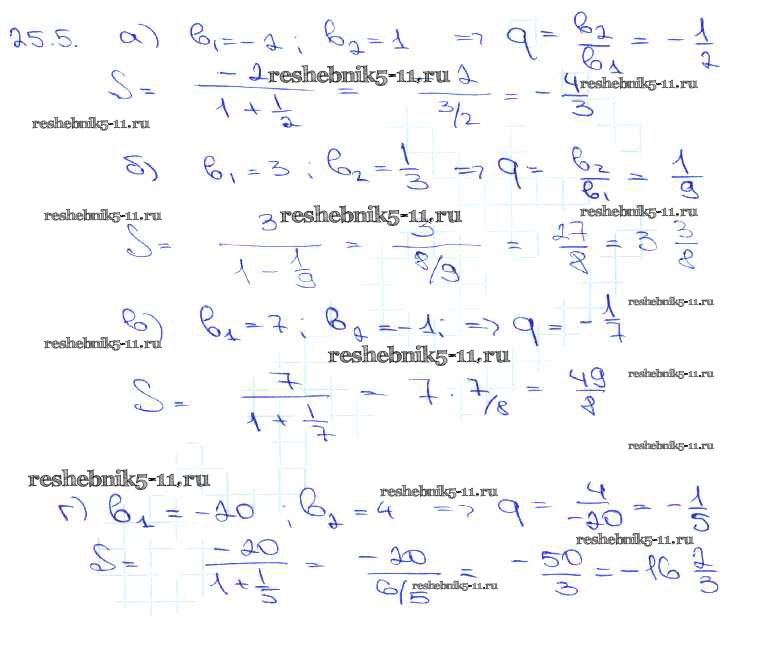 25.5. а) b₁ = -2 ; b₂ = 1 => q = b₂/b₁ = - 1/2
S = -2/(1 + 1/2) = 2/(3/2) = - 4/3
reshebnik5-11.ru reshebnik5-11.ru
reshebnik5-11.ru
б) b₁ = 3 ; b₂ = 1/3 => q = b₂/b₁ = 1/9
reshebnik5-11.ru reshebnik5-11.ru reshebnik5-11.ru
S = 3/(1 - 1/9) = 3/(8/9) = 27/8 = 3 3/8
reshebnik5-11.ru
в) b₁ = 7 ; b₂ = -1; => q = - 1/7
reshebnik5-11.ru reshebnik5-11.ru
reshebnik5-11.ru
S = 7/(1 + 1/7) = 7 · 7/8 = 49/8
reshebnik5-11.ru
reshebnik5-11.ru
reshebnik5-11.ru
г) b₁ = -20 ; b₂ = 4 => q = 4/-20 = - 1/5
reshebnik5-11.ru
S = -20/(1 + 1/5) = -20/(6/5) = - 50/3 = -16 2/3
reshebnik5-11.ru